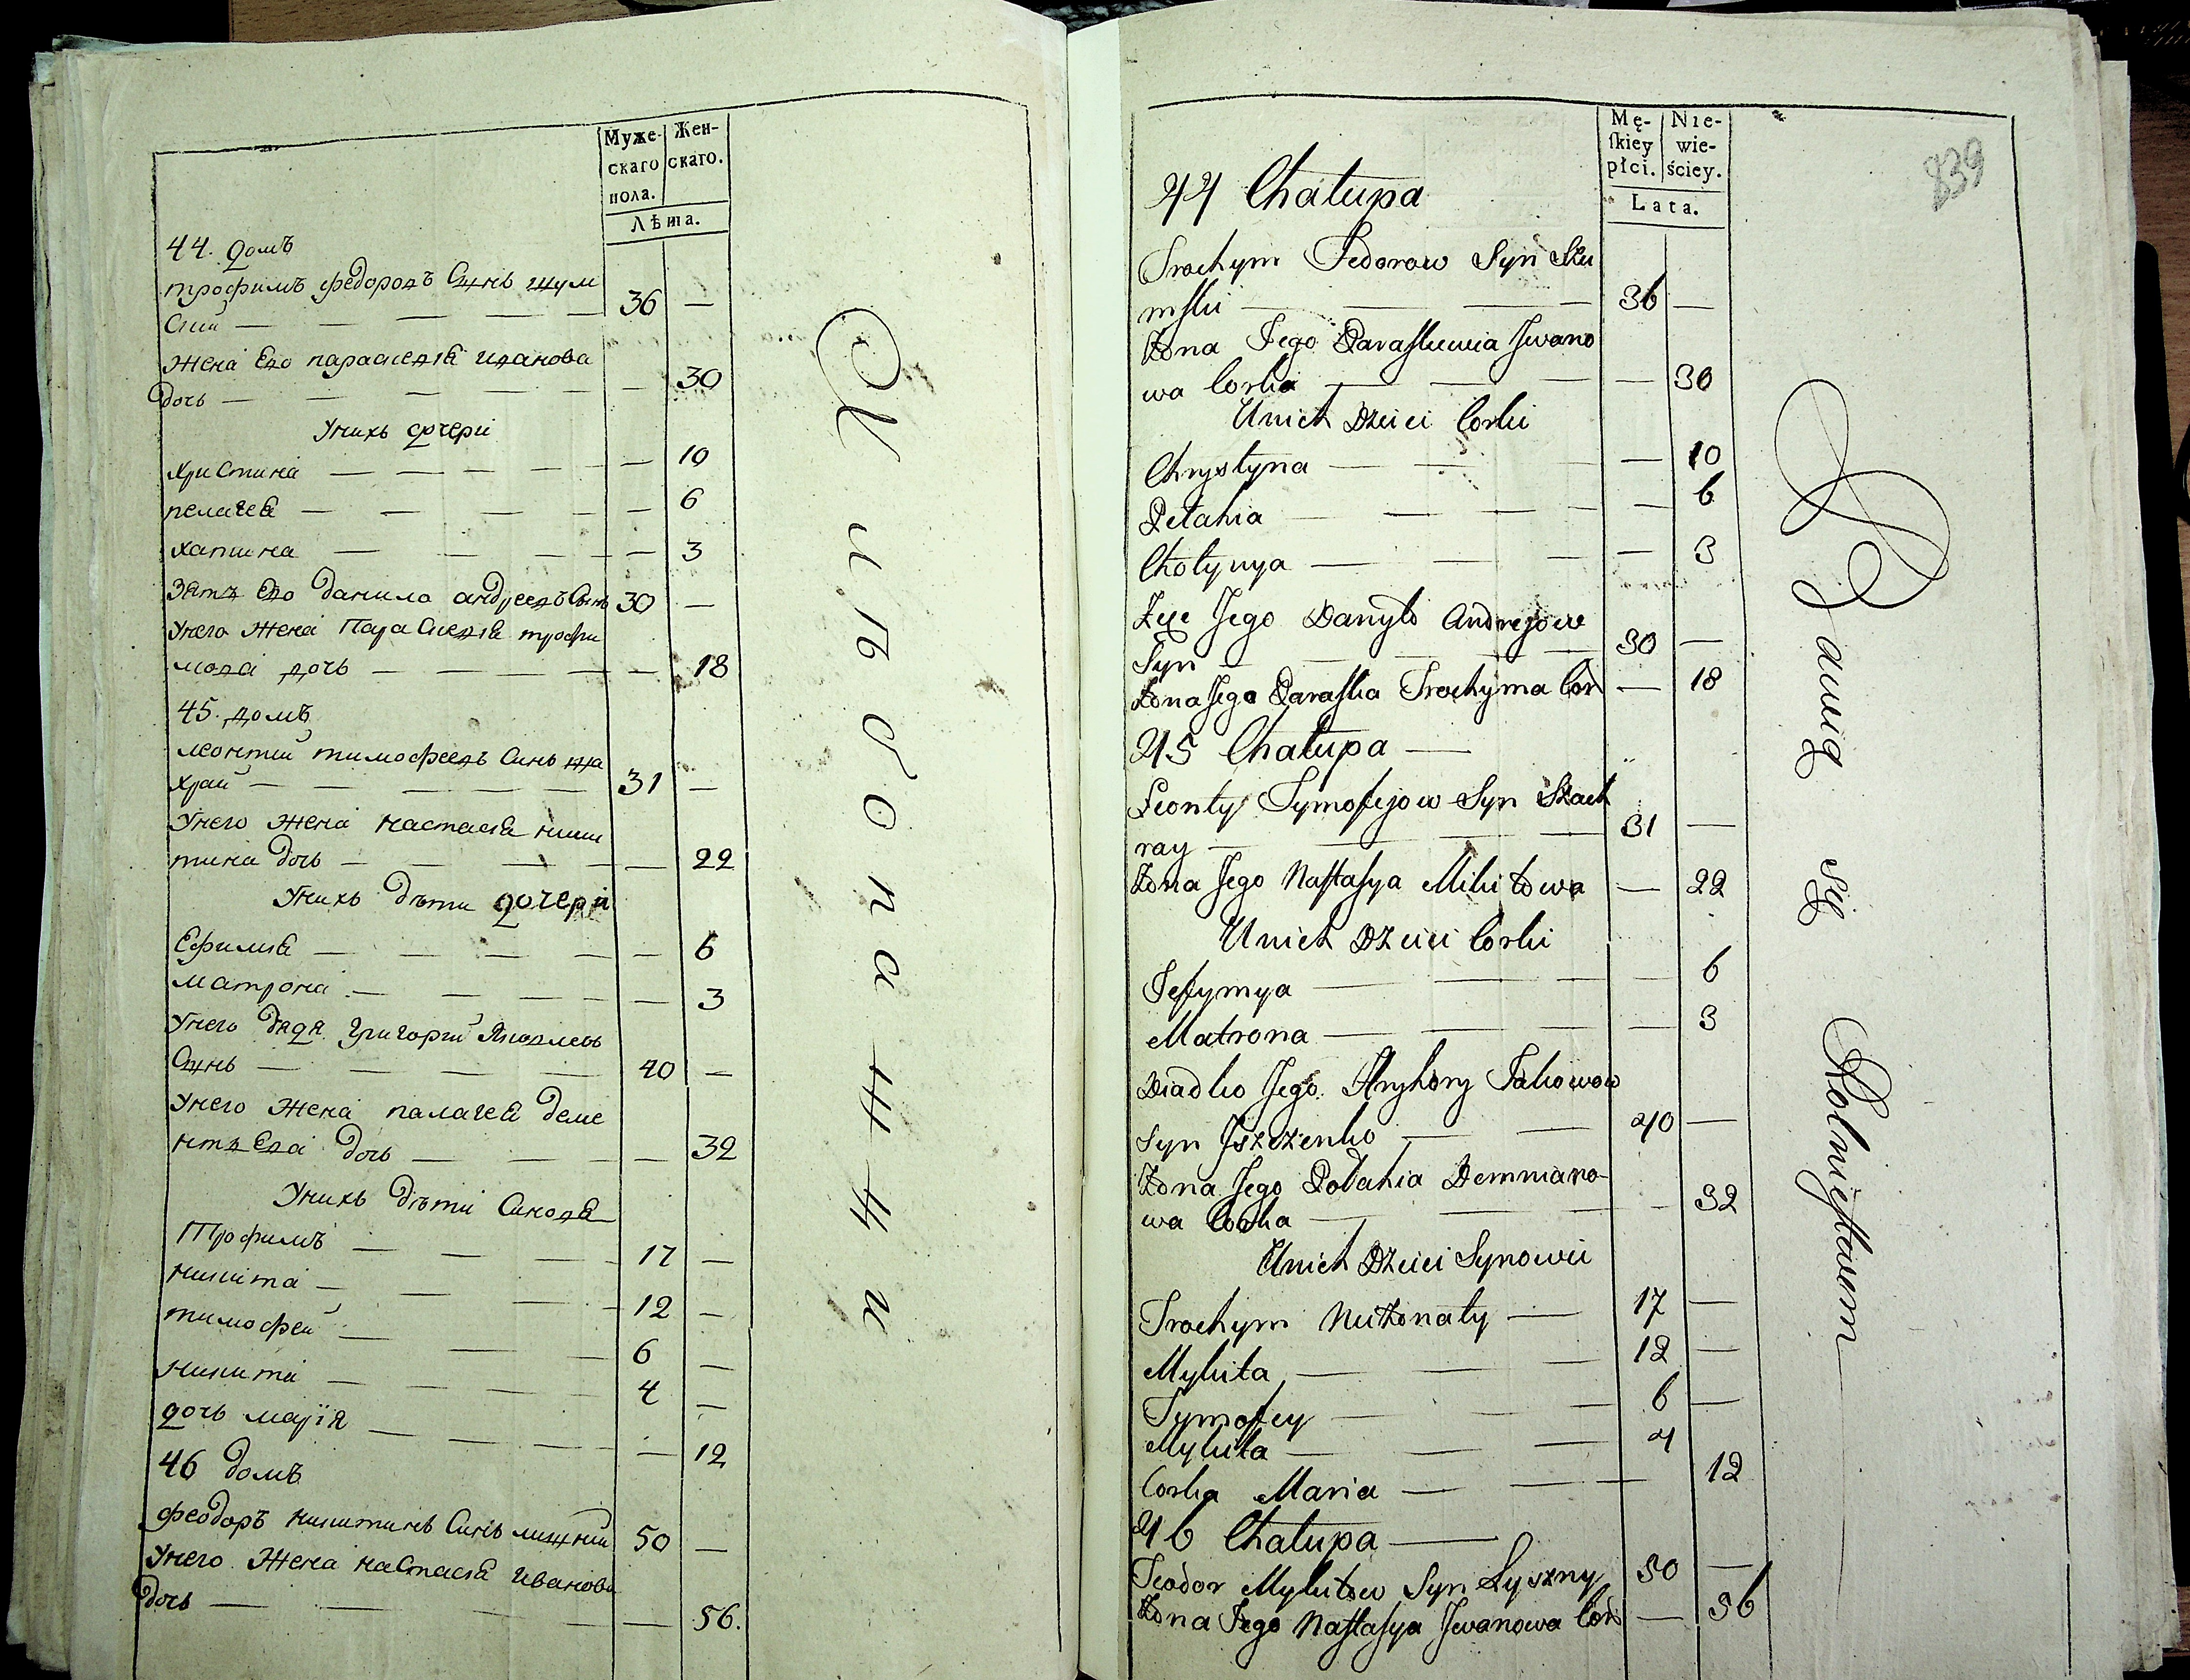 Муже-
скаго
пола.
Жен-
скаго.
Лѣта.
44. домъ
трофимъ федоровъ Сынъ шум
ский — 36 —
жена Его параскевiя иванова
дочь — — 30
Унихъ дочери
христина — — 10
пелагея — — 6
хатина — — 3
Зять Его данило андреевъ Сынъ 30 —
Унего жена Параскевiя трофи
мова дочь — — 18
45. домъ
леонтий тимофеевъ Синъ
храй — 31 —
Унего жена настасiя ники
тина дочь — — 22
Унихъ дѣти дочери
Ефимiя — — 6
матрона — — 3
Унего дядя григорий Яковлевъ
Сынъ — 40 —
Унего жена палагея деме
нтьева дочь — — 32
Унихъ дѣти Синовя
Трофимъ — 17 —
никита — 12 —
тимофей — 6 —
никита — 4 —
дочь марiя — — 12
46 домъ
феодоръ никитинъ Синъ лишний 50 —
Унего жена настасiя Иванова
дочь — — 56.
Хлѣбопашни
839
Mę-
skiey
płci.
Nie-
wie-
ściey.
Lata.
44 Chałupa
Trochym Fedorow Syn Szu
mski — 36 —
Żona Jego Paraskiewia Jwano
wa Corka — — 30
Unich Dzieci Corki
Chrystyna — — 10
Pelahia — — 6
Chotynya — — 3
Zęc Jego Danyło Andrejow
Syn — 30 —
Żona Jego Paraska Trochyma Cor — 18
45 Chałupa —
Leonty Tymofejow Syn Szach
ray — 31 —
Żona Jego Nastasya Mikitowa — 22
Unich Dzieci Corki
Jefymya — — 6
Matrona — — 3
Diadko Jego Hryhory Jakowow
Syn Jszczenko — 40 —
Żona Jego Połahia Demmiano-
wa Corka — — 32
Unich Dzieci Synowie
Trochym Nieżonaty — 17 —
Mykita — 12 —
Tymofey — 6 —
Mykita — 4
Corka Maria — — 12
46 Chałupa —
Teodor Mykitow Syn Łyszny 50 —
Żona Jego Nastasya Jwanowa Cor — 56
Bawią się Rolnictwem